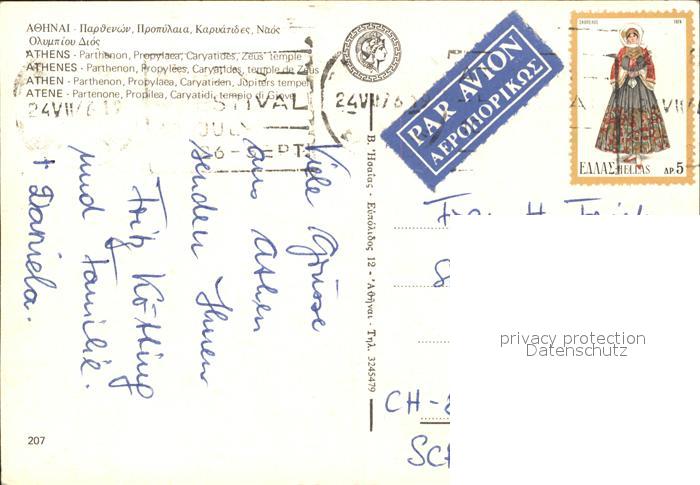 ΑΘΗΝΑΙ - Παρθενών, Προπύλαια, Καρυάτιδες, Ναός
Ολυμπίου Διός
ATHENS - Parthenon, Propylaea, Caryatides, Zeus' temple
ATHENES - Parthenon, Propylées, Caryatides, temple de Zeus
ATHEN - Parthenon, Propylaea, Caryatiden, Jupiters tempel
ATENE - Partenone, Propilea, Caryatidi, tempio di Giove
24 VII 76 19
STIVAL
JULY
26 - SEPT
24 VII 76
VII
PAR AVION
ΑΕΡΟΠΟΡΙΚΩΣ
ΣΚΟΠΕΛΟΣ 1974
ΕΛΛΑΣ HELLAS ΔΡ. 5
Viele Grüsse
aus Athen
senden Ihnen
Fritz Kötting
und Familie.
+ Daniela.
Β. Ἡσαΐας - Εὐπόλιδος 12 - Ἀθῆναι - Τηλ. 3245479
Frau H.
CH-8
SCH
privacy protection
Datenschutz
207